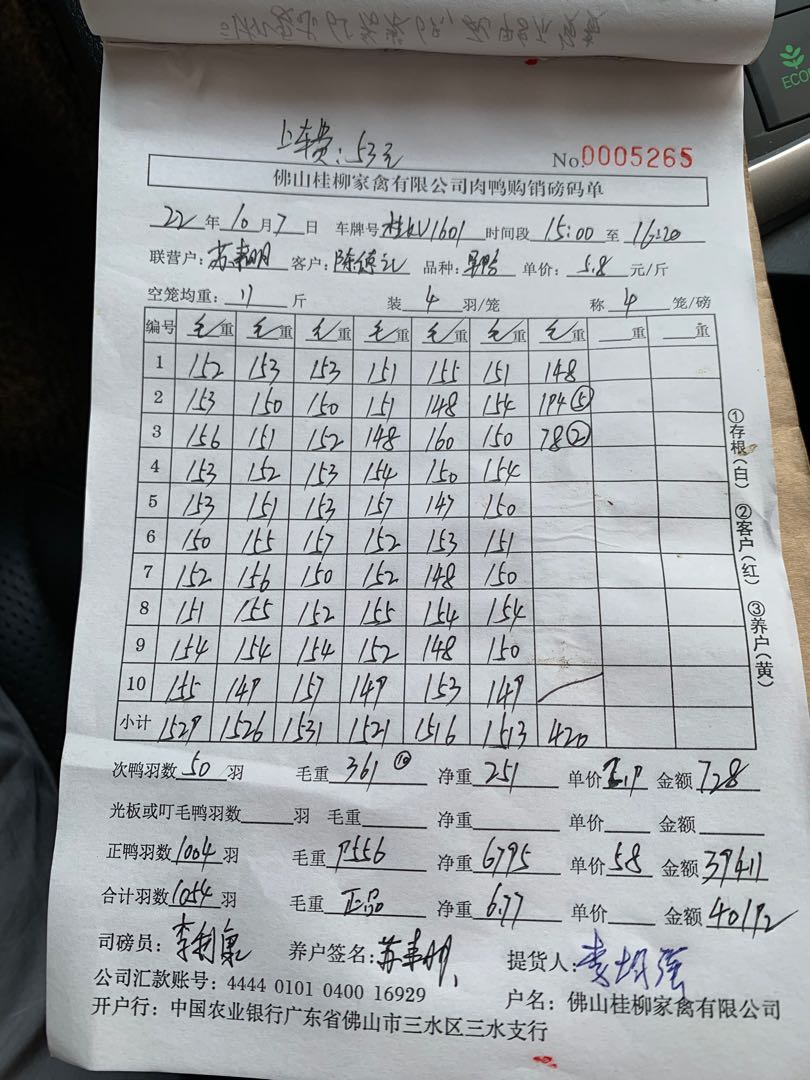 ECON
上车费：53元
No.0005265
佛山桂柳家禽有限公司肉鸭购销磅码单
22年10月7日 车牌号桂KV1601 时间段15:00至16:20
联营户：苏 明 客户：陈德记 品种： 鸭 单价：5.8元/斤
空笼均重：11斤 装4羽/笼 称4笼/磅
编号 毛重 毛重 毛重 毛重 毛重 毛重 毛重 重 重
1 152 153 153 151 155 151 148
2 153 150 150 151 148 154 194⑤
3 156 151 152 148 160 150 78②
4 153 152 153 154 150 154
5 153 151 153 157 147 150
6 150 155 157 152 153 151
7 152 156 150 152 148 150
8 151 155 152 155 154 154
9 154 154 154 152 148 150
10 155 149 157 149 153 149
小计 1529 1526 1531 1521 1516 1513 420
次鸭羽数50羽 毛重361⑩ 净重251 单价2.9 金额728
光板或叮毛鸭羽数羽 毛重 净重 单价 金额
正鸭羽数1004羽 毛重9556 净重6795 单价58 金额39411
合计羽数1054羽 毛重正品 净重6.77 单价 金额40192
司磅员：李 康 养户签名：苏 明 提货人：李 强
公司汇款账号：4444 0101 0400 16929 户名：佛山桂柳家禽有限公司
开户行：中国农业银行广东省佛山市三水区三水支行
①存根（白） ②客户（红） ③养户（黄）